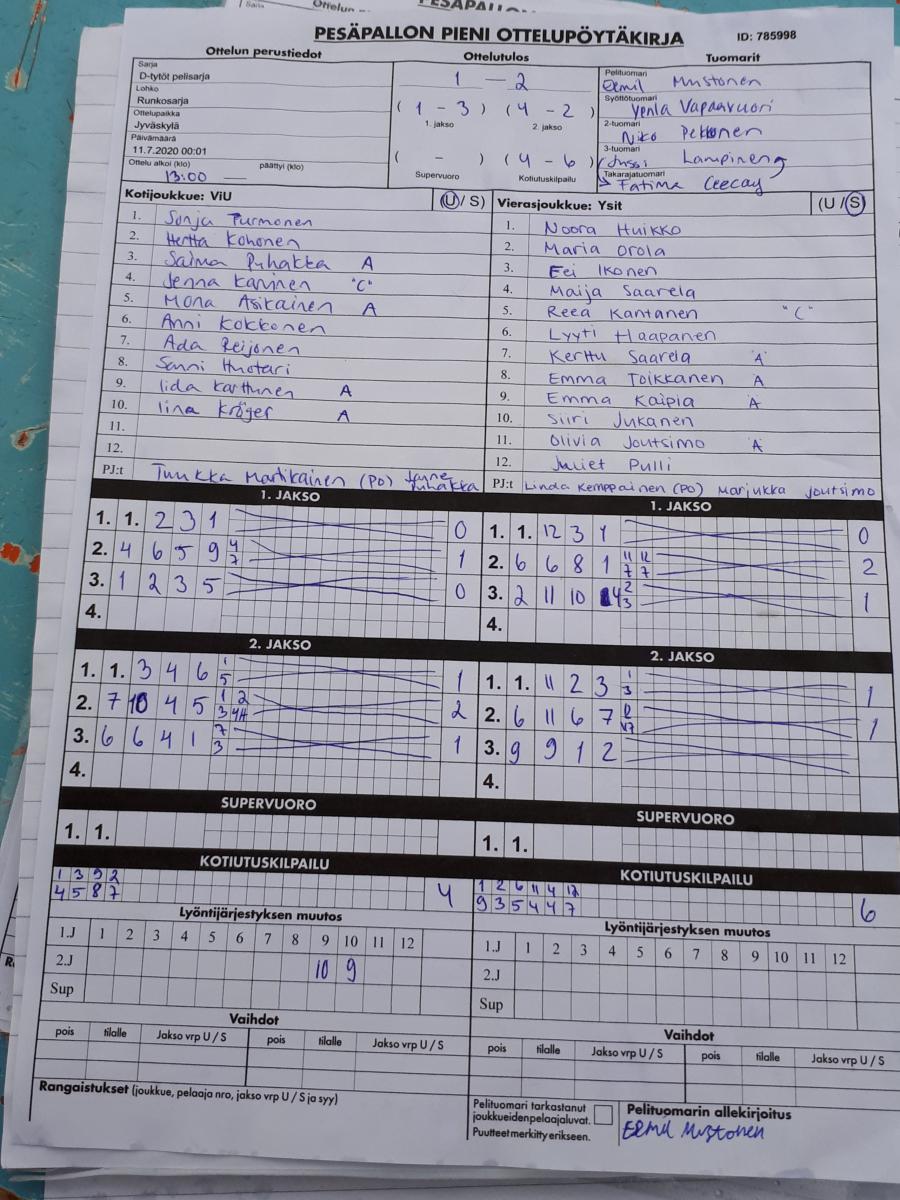 PESÄPALLON PIENI OTTELUPÖYTÄKIRJA ID: 785998
Ottelun perustiedot
Sarja
D-tytöt pelisarja
Lohko
Runkosarja
Ottelupaikka
Jyväskylä
Päivämäärä
11.7.2020 00:01
Ottelu alkoi (klo) päättyi (klo)
13:00
Ottelutulos
1 — 2
( 1 - 3 ) ( 4 - 2 )
1. jakso 2. jakso
( - ) ( 4 - 6 )
Supervuoro Kotiutuskilpailu
Tuomarit
Pelituomari
Eemil Mustonen
Syöttötuomari
Venla Vapaavuori
2-tuomari
Niko Pekkonen
3-tuomari
Jussi Lampinen
Takarajatuomari
Fatima Ceecay
Kotijoukkue: ViU (U / S)
1. Sonja Turmonen
2. Hertta Kohonen
3. Saima Puhakka A
4. Jenna Karvinen "C"
5. Mona Asikainen A
6. Anni Kokkonen
7. Ada Reijonen
8. Sanni Huotari
9. Iida Karttunen A
10. Iina Kröger A
11.
12.
PJ:t Tuukka Martikainen (PO) Janne Puhakka
Vierasjoukkue: Ysit (U / S)
1. Noora Huikko
2. Maria Orola
3. Eei Ikonen
4. Maija Saarela
5. Reea Kantanen "C"
6. Lyyti Haapanen
7. Kerttu Saarela A
8. Emma Toikkanen A
9. Emma Kaipia A
10. Siiri Jukanen
11. Olivia Joutsimo A
12. Juliet Pulli
PJ:t Linda Kemppainen (PO) Marjukka Joutsimo
1. JAKSO
1. 1. 2 3 1 0
2. 4 6 5 9 4 7 1
3. 1 2 3 5 0
4.
1. JAKSO
1. 1. 12 3 1 0
2. 6 6 8 1 11 7 12 7 2
3. 2 11 10 4 2 3 1
4.
2. JAKSO
1. 1. 3 4 6 1 5 1
2. 7 10 4 5 1 3 2 2
3. 6 6 4 1 7 3 1
4.
2. JAKSO
1. 1. 11 2 3 1 3 1
2. 6 11 6 7 1
3. 9 9 1 2
4.
SUPERVUORO
1. 1.
SUPERVUORO
1. 1.
KOTIUTUSKILPAILU
1 3 9 2
4 5 8 7 4
KOTIUTUSKILPAILU
1 2 6 11 4 12
9 3 5 4 4 7 6
Lyöntijärjestyksen muutos
1.J 1 2 3 4 5 6 7 8 9 10 11 12
2.J 10 9
Sup
Lyöntijärjestyksen muutos
1.J 1 2 3 4 5 6 7 8 9 10 11 12
2.J
Sup
Vaihdot
pois tilalle Jakso vrp U / S pois tilalle Jakso vrp U / S
Vaihdot
pois tilalle Jakso vrp U / S pois tilalle Jakso vrp U / S
Rangaistukset (joukkue, pelaaja nro, jakso vrp U / S ja syy)
Pelituomari tarkastanut
joukkueidenpelaajaluvat.
Puutteet merkitty erikseen.
Pelituomarin allekirjoitus
Eemil Mustonen